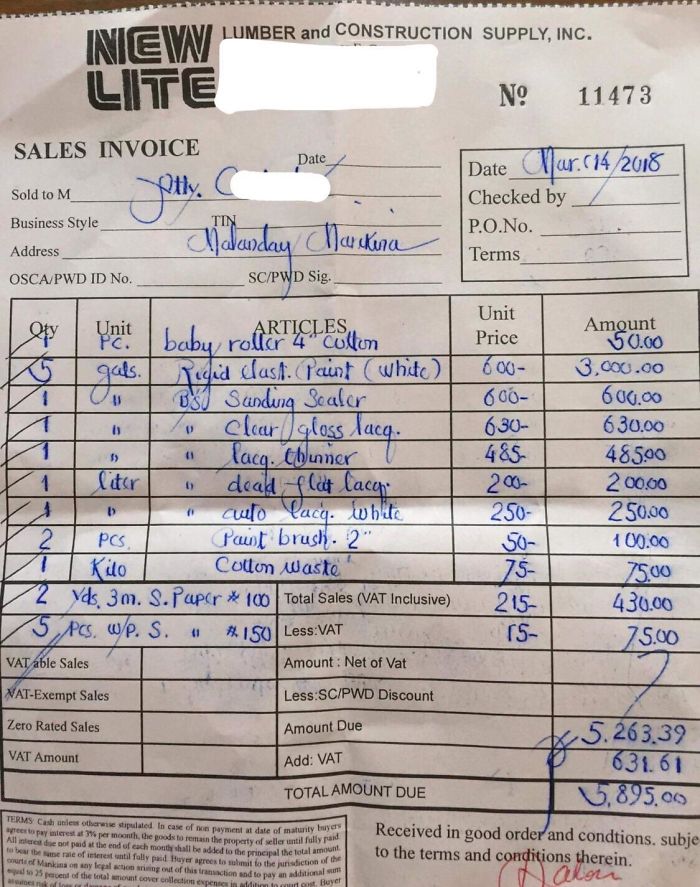 NEW LITE LUMBER and CONSTRUCTION SUPPLY, INC.
Nº 11473
SALES INVOICE
Date
Sold to M Jetty. C
Business Style TIN
Address Malanday Marikina
OSCA/PWD ID No. SC/PWD Sig.
Date Mar. 14/2018
Checked by
P.O.No.
Terms
Qty Unit ARTICLES Unit Price Amount
1 Pc. baby roller 4" cotton 50.00
5 gals. Rigid elast. Paint (white) 600- 3,000.00
1 " BSJ Sanding Sealer 600- 600.00
1 " " Clear gloss lacq. 630- 630.00
1 " " lacq. thinner 485- 485.00
1 liter " dead flat lacq. 200- 200.00
1 " " auto lacq. white 250- 250.00
2 pcs. Paint brush. 2" 50- 100.00
1 Kilo Cotton waste 75- 75.00
2 yds. 3m. S. Paper # 100 Total Sales (VAT Inclusive) 215- 430.00
5 pcs. w/p. S. " # 150 Less:VAT 15- 75.00
VATable Sales Amount : Net of Vat
VAT-Exempt Sales Less:SC/PWD Discount
Zero Rated Sales Amount Due 5,263.39
VAT Amount Add: VAT 631.61
TOTAL AMOUNT DUE ₱ 5,895.00
TERMS: Cash unless otherwise stipulated. In case of non payment at date of maturity buyers
agrees to pay interest at 3% per moonth, the goods to remain the property of seller until fully paid.
All interest due not paid at the end of each month shall be added to the principal the total amount.
to bear the same rate of interest until fully paid. Buyer agrees to submit fo the jurisdiction of the
courts of Marikina on any legal action arising out of this transaction and to pay an additional sum
equal to 25 percent of the total amount cover collection expenses in addition to court cost. Buyer
assumes risk of loss
Received in good order and condtions. subje
to the terms and conditions therein.